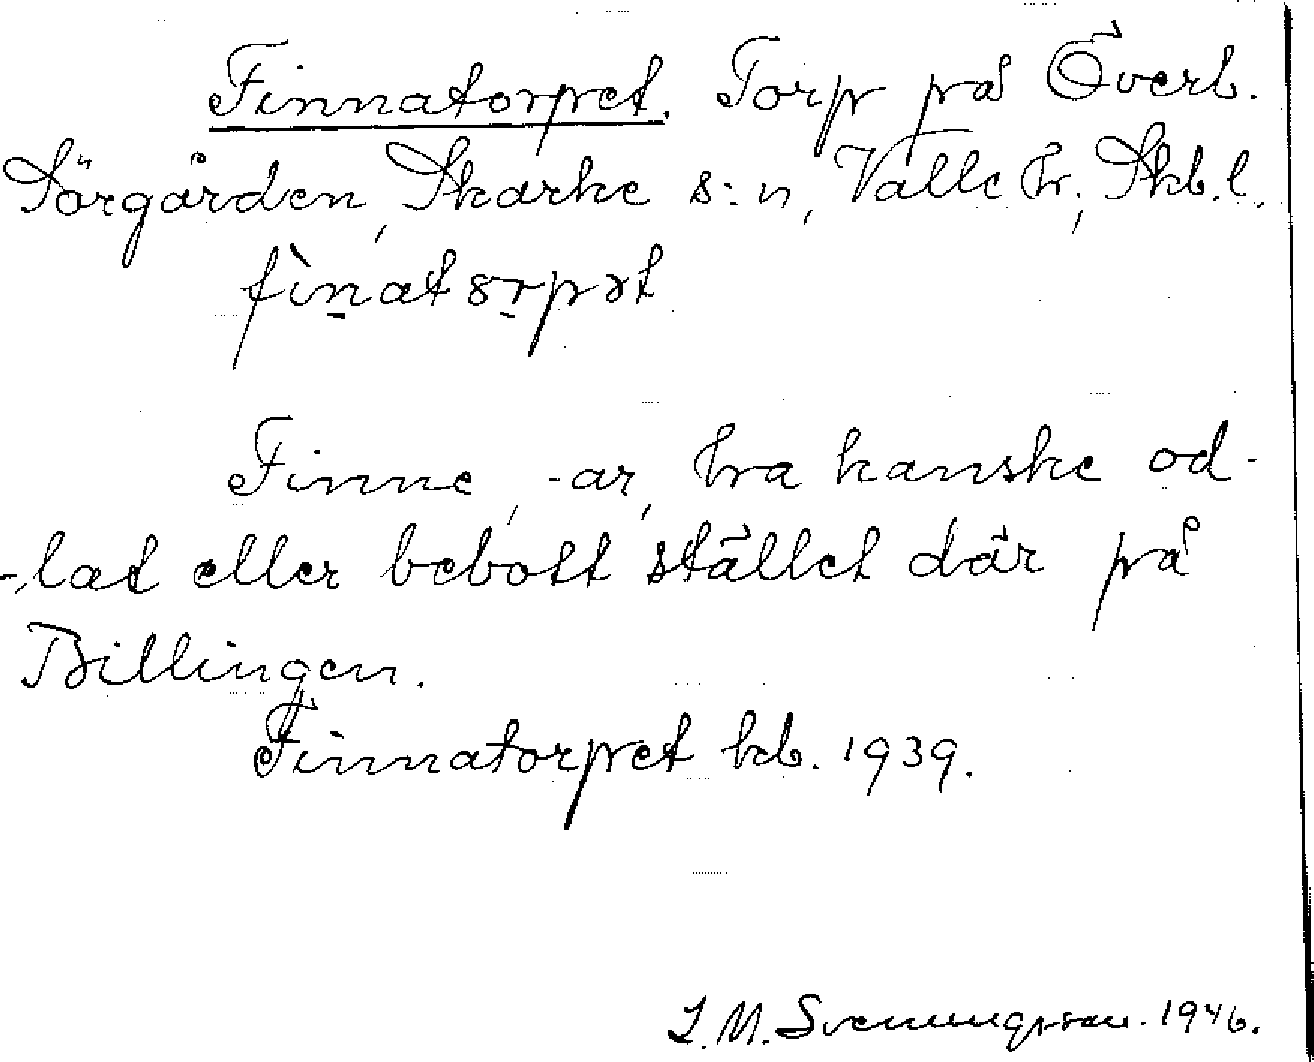 Finnatorpet. Torp på Överb.
Sörgården, Skarke s:n, Valle hr, Skb.l.
fìnatɞrpət
Finne, -ar, ha kanske od-
-lat eller bebott stället där på
Billingen.
Finnatorpet kb. 1939.
Svenungsson. 1946.